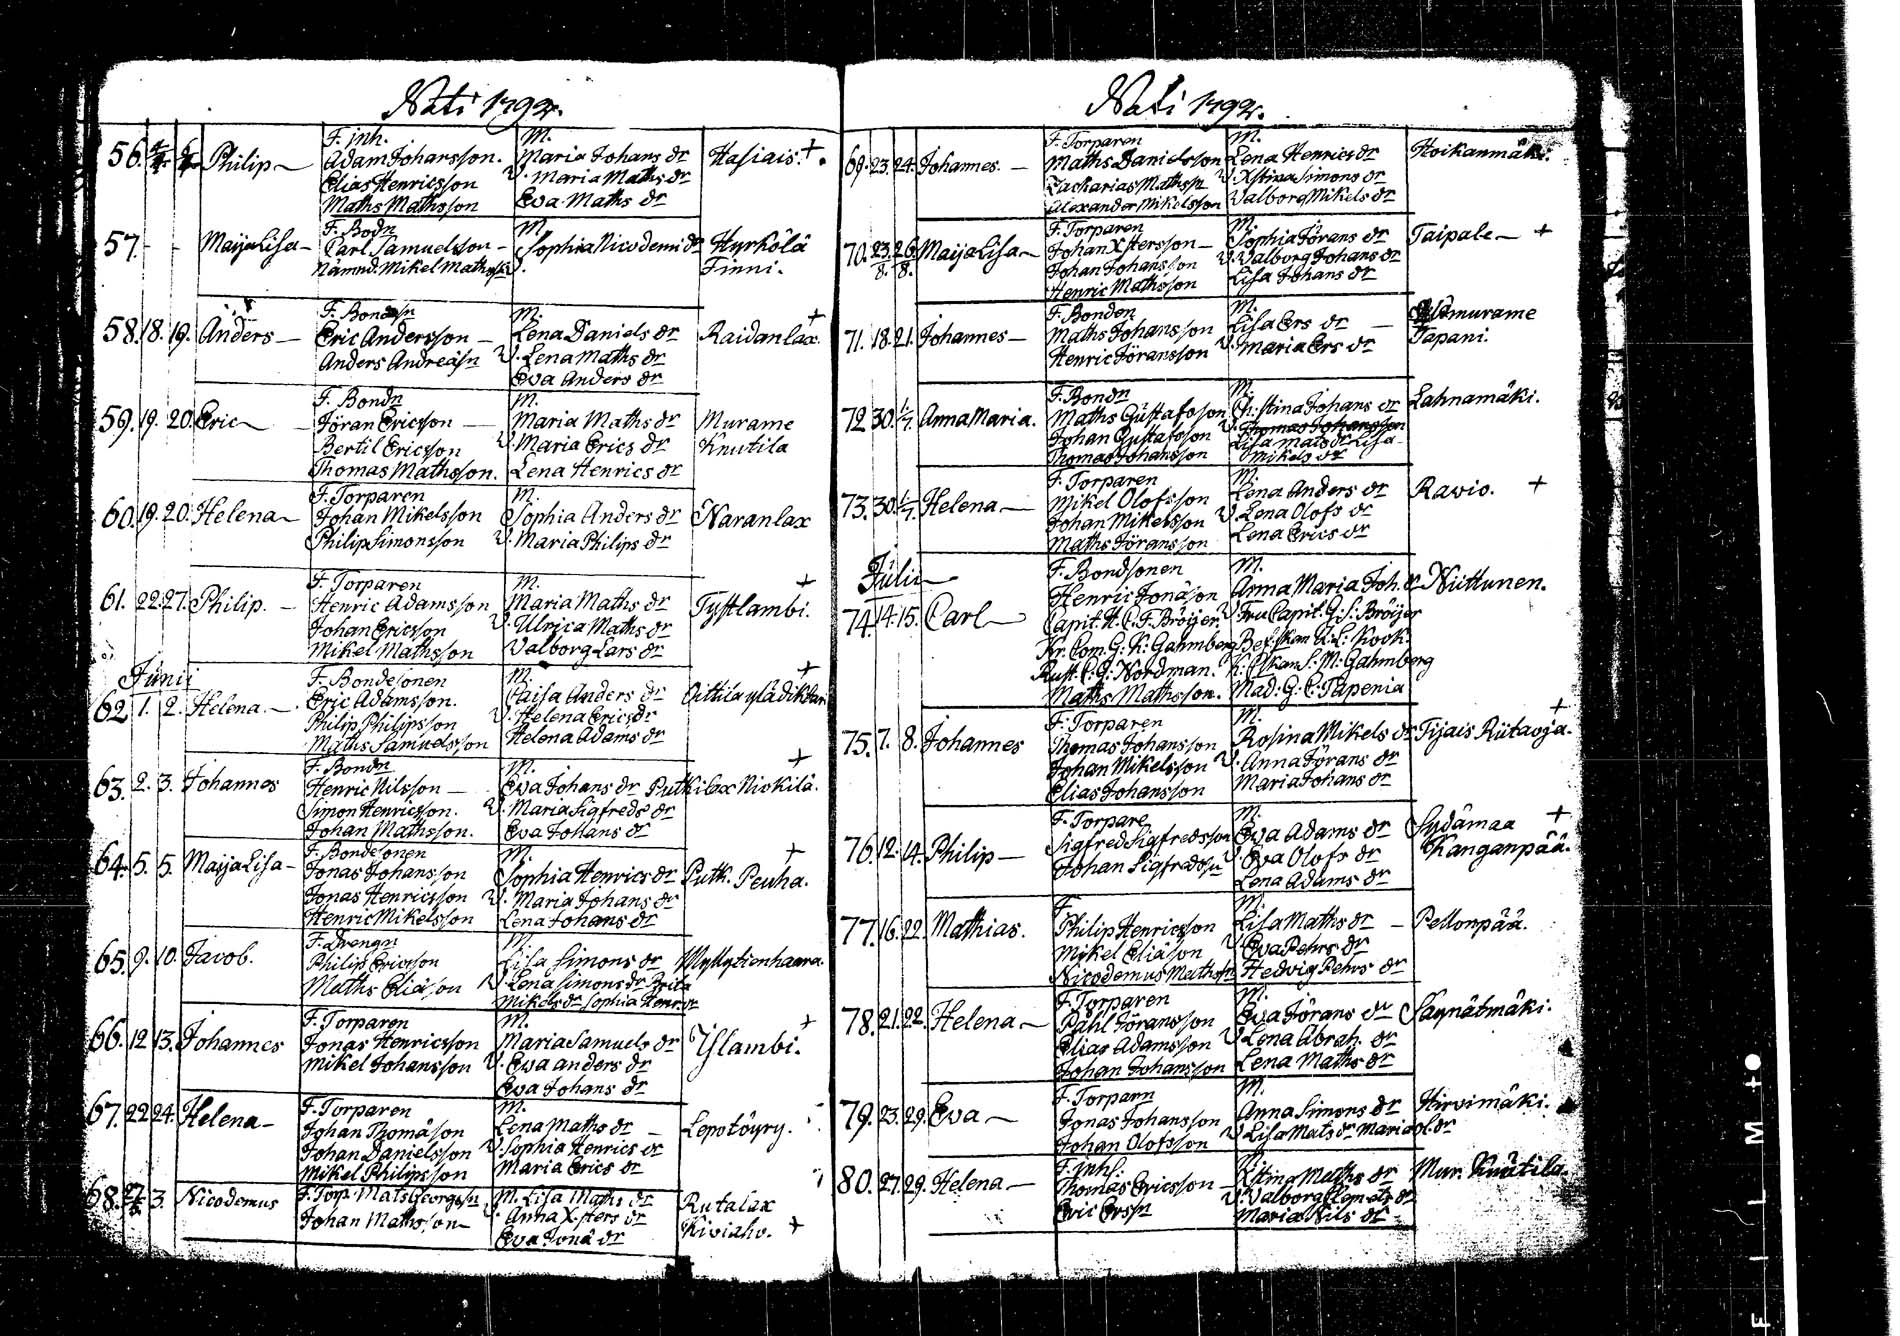 Nati 1792.
56. Philip F. Inh. M.
Adam Johansson. Maria Johans dr Hasiais. +.
Elias Henricsson V. Maria Maths dr
Maths Mathsson Eva Maths dr
57 - - Maija Lisa - F. Bodn M.
Carl Samuelsson - Sophia Nicodemi dr Hyrkölä
Nämnd. Mikel Mathss. V. Finni.
58. 18. 19. Anders - F. Bondsn M. +
Eric Andersson - Lena Daniels dr Raidanlax.
Anders Andreæsn V. Lena Maths dr
Eva Anders dr
59. 19. 20. Eric - F. Bondn M.
Jöran Ericsson - Maria Maths dr Murame
Bertil Ericsson V. Maria Erics dr Knutila
Thomas Mathsson. Lena Henrics dr
60. 19. 20. Helena - F. Torparen M.
Johan Mikelsson Sophia Anders dr Naranlax
Philip Simonsson V. Maria Philips dr
61. 22. 27. Philip. - F. Torparen M. +
Henric Adamsson Maria Maths dr Tystlambi.
Johan Ericsson V. Ulrica Maths dr
Mikel Mathsson Valborg Lars dr
Junii
62 1. 2. Helena. - F. Bondesonen M. +
Eric Adamsson. Caisa Anders dr Oittila
Philip Philipsson V. Helena Erics dr
Maths Samuelsson Helena Adams dr
63. 2. 3. Johannes F. Bondn M. +
Henric Nilsson - Eva Johans dr Putkilax Niskilä.
Simon Henricsson. V. Maria Sigfreds dr
Johan Mathsson. Eva Johans dr
64. 5. 5. Maija Lisa - F. Bondesonen M. +
Jonas Johansson Sophia Henrics dr Putk. Peuha.
Jonas Henricsson V. Maria Johans dr
Henric Mikelsson Lena Johans dr
65. 9. 10. Jacob. F. Drengn M.
Philip Ericsson Lisa Simons dr Myllytienhaara.
Maths Eliæson V. Lena Simons dr Brita
Mikels dr Sophia Henr. dr
66. 12 13. Johannes F. Torparen M. +
Jonas Henricsson Maria Samuels dr Islambi.
Mikel Johansson V. Ewa Anders dr
Eva Johans dr
67. 22 24. Helena - F. Torparen M.
Johan Thomæson Lena Maths dr - Lepotöyry.
Johan Danielsson V. Sophia Henrics dr
Mikel Philipsson Maria Erics dr
68. 27 3. Nicodemus F. Torp. Mats Georgssn M. Lisa Maths dr Rutalax
Johan Mathsson V. Anna X.sters dr Kiviaho. +
Eva Jonæ dr
Nati 1792.
69. 23. 24. Johannes. - F. Torparen M.
Maths Danielsson Lena Henrics dr Hoikanmäki.
Zacharias Mathssn V. Xstina Simons dr
Alexander Mikelsson Valborg Mikels dr
70. 23/8. 26/8. Maija Lisa - F. Torparen M.
Johan Xstersson - Sophia Jörans dr Taipale - +
Johan Johansson V. Valborg Johans dr
Henric Mathsson Lisa Johans dr
71. 18. 21. Johannes - F. Bonden M. murame
Maths Johansson Lisa Ers dr - Tapani.
Henric Jöransson V. Maria Ers dr
72 30. 1/7. Anna Maria. F. Bondn M.
Maths Gustafsson Christina Johans dr Lahnamäki.
Johan Gustafsson V. Thomas Johansson
Thomas Johansson Lisa Mats dr Lisa
Mikels dr
73. 30. 1/7. Helena - F. Torparen M.
Mikel Olofsson Lena Anders dr Ravio. +
Johan Mikelsson V. Lena Olofs dr
Maths Jöransson Lena Erics dr
Julii
74. 14. 15. Carl - F. Bondsonen M.
Henric Jonæson Anna Maria Joh. dr Niittunen.
Capit. H. C. F. Bröijer V. Fru Capit. G: S: Bröijer
Kr. Com. G. K. Gahmberg Bef.skan K: L: Kook.
Rust. C: G: Nordman. S: M: Gahmberg
Maths Mathsson. Mad: G: C: Tapenia
75. 7. 8. Johannes F. Torparen M. +
Thomas Johansson Rosina Mikels dr Tijais Riitaoja.
Johan Mikelsson V. Anna Jörans dr
Elias Johansson Maria Johans dr
76. 12. 14. Philip - F. Torpare M.
Sigfred Sigfredsson Eva Adams dr Sydämaa +
Johan Sigfredssn V. Eva Olofs dr Kanganpää.
Lena Adams dr
77. 16. 22. Mathias. F. M.
Philip Henricsson Lisa Maths dr - Pellonpää.
Mikel Eliæson V. Eva Pehrs dr
Nicodemus Mathssn Hedvig Pehrs dr
78. 21. 22. Helena - F. Torparen M.
Påhl Jöransson Eva Jörans dr Säynätmäki.
Elias Adamsson V. Lena Abrah. dr
Johan Johansson Lena Maths dr
79. 23. 29. Eva - F. Torparn M.
Jonas Johansson Anna Simons dr Hirvimäki.
Johan Olofsson V. Lisa Mats dr Maria Ol. dr
80. 27. 29. Helena - F. Inhs. M.
Thomas Ericsson - Xstina Maths dr Mur. Knutila.
Eric Erssn V. Valborg Clemets dr
Maria Nils dr
F I L M